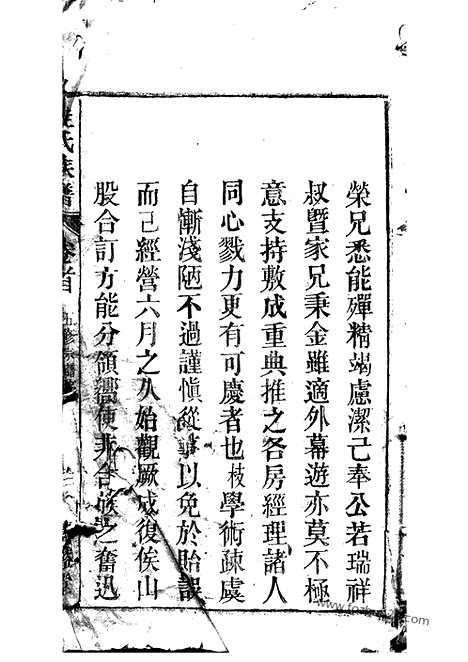 榮兄悉能殫精竭慮潔己奉公若瑞祥
叔暨家兄秉金雖適外幕遊亦莫不極
意支持敷成重典推之各房經理諸人
同心戮力更有可慶者也枝學術疎虞
自慚淺陋不過謹慎從事以免於貽誤
而已經營六月之久始觀厥成復俟山
股合訂方能分領嚮使非合族之奮迅
氏族譜
卷首